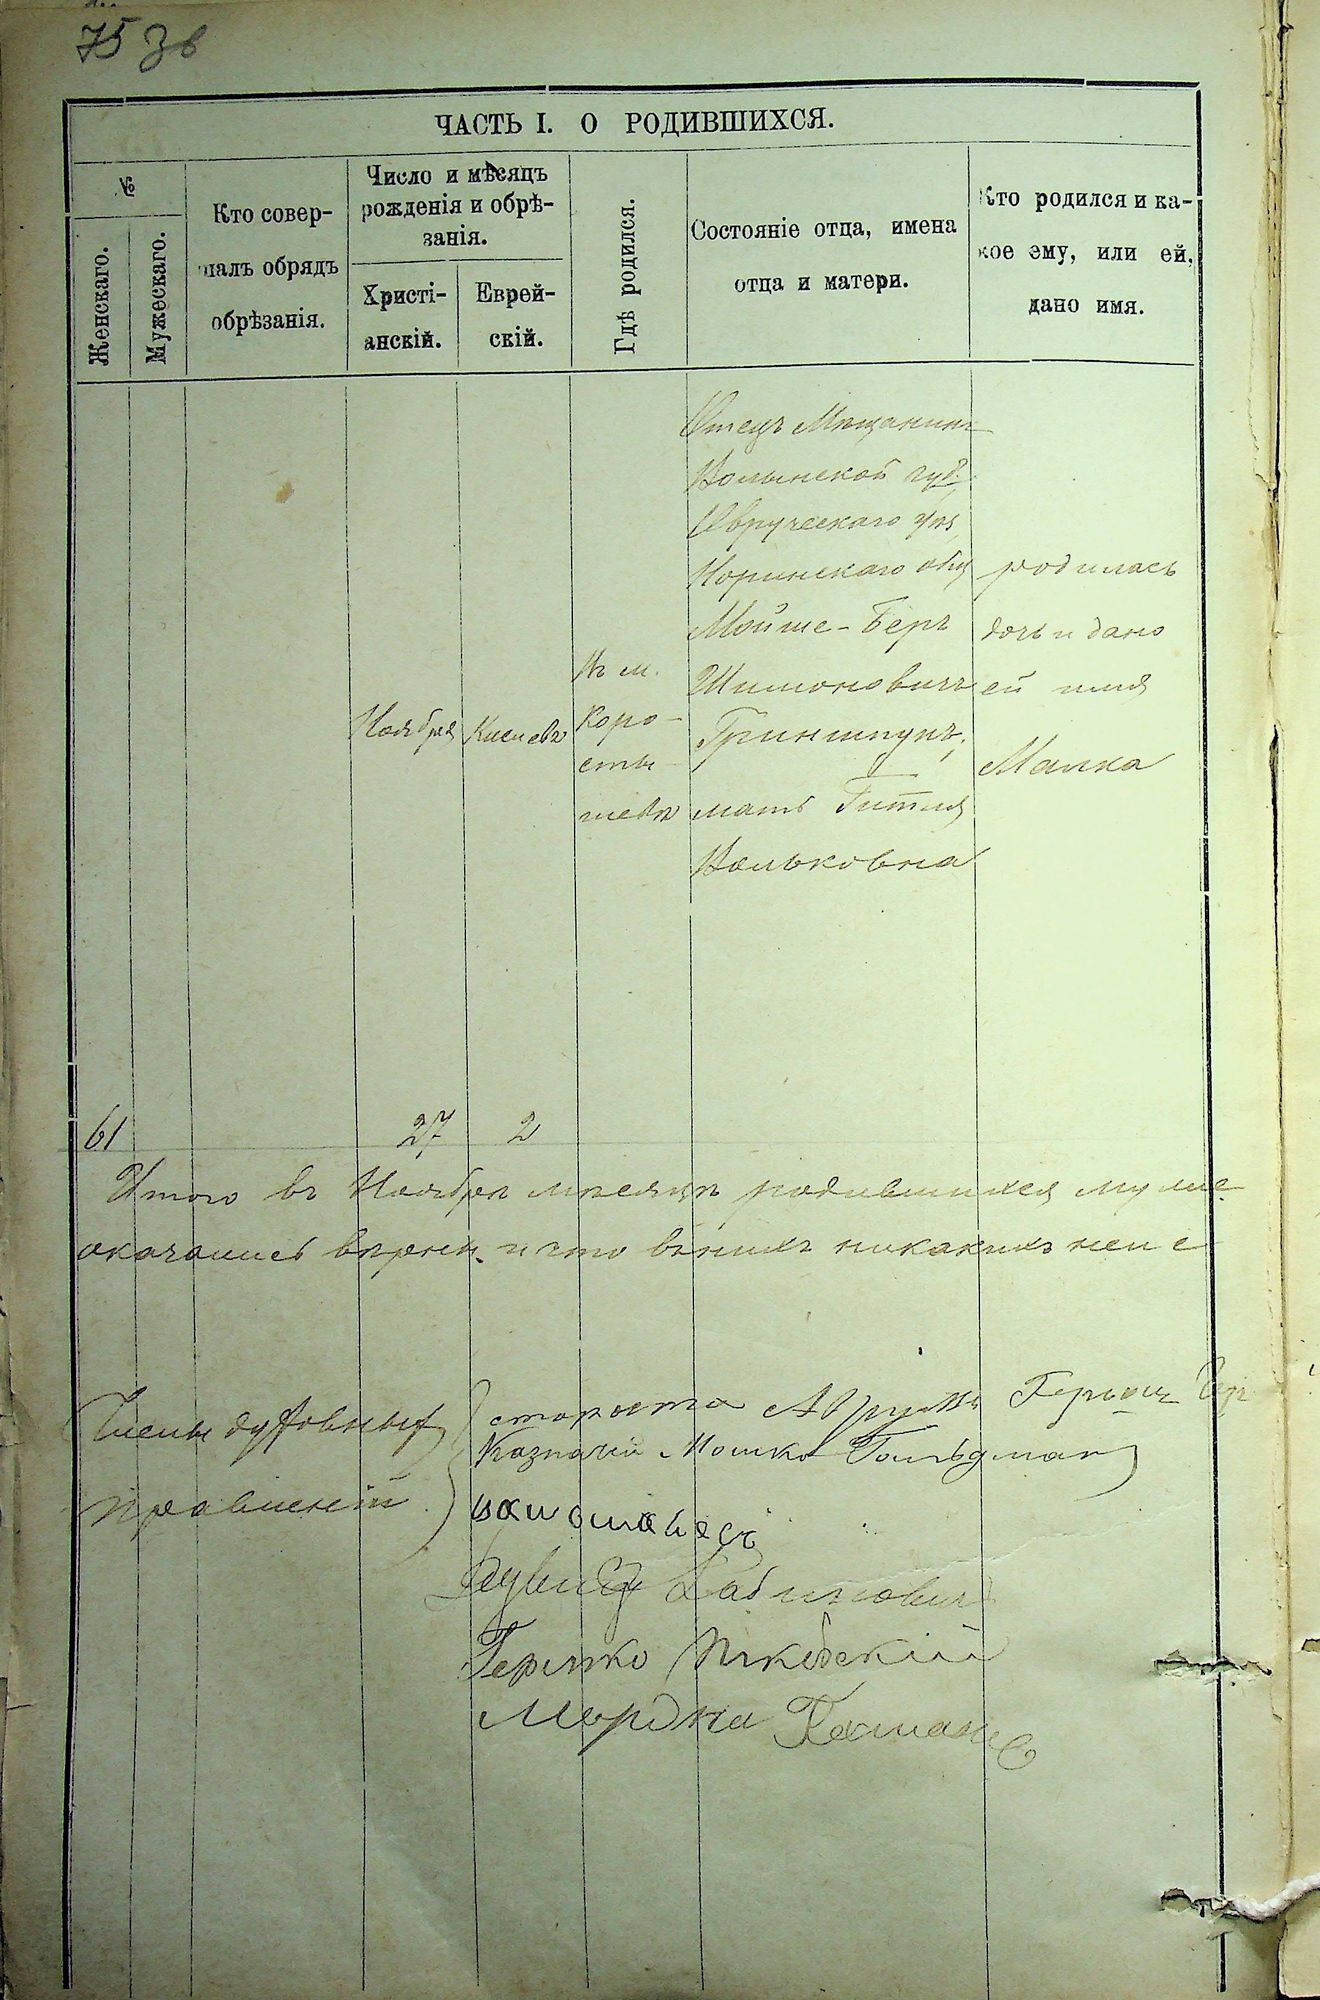 75 зв
ЧАСТЬ I. О РОДИВШИХСЯ.
№
Женскаго.
Мужескаго.
Кто совер-
шалъ обрядъ
обрѣзанія.
Число и мѣсяцъ
рожденія и обрѣ-
занія.
Христі-
анскій.
Еврей-
скій.
Гдѣ родился.
Состояніе отца, имена
отца и матери.
Кто родился и ка-
кое ему, или ей,
дано имя.
61
27
Ноября
2
Кислевъ
Въ м.
Коро-
сты-
шевѣ
Отецъ Мѣщанинъ
Волынской губ.
Овручскаго
Норинскаго общ
Мойше-Беръ
Шимоновичъ
Гриншпунъ,
мать Гитля
Вольковна
родилась
дочь и дано
ей имя
Малка
Итого въ Ноябрѣ мѣсяцѣ родившихся муже
оказались вѣрны и что въ нихъ никакихъ неис
Члены духовныхъ
правленій
староста Аврумъ Гершъ
Казначій Мошко Гольдман
Рабиновичъ
Гершко